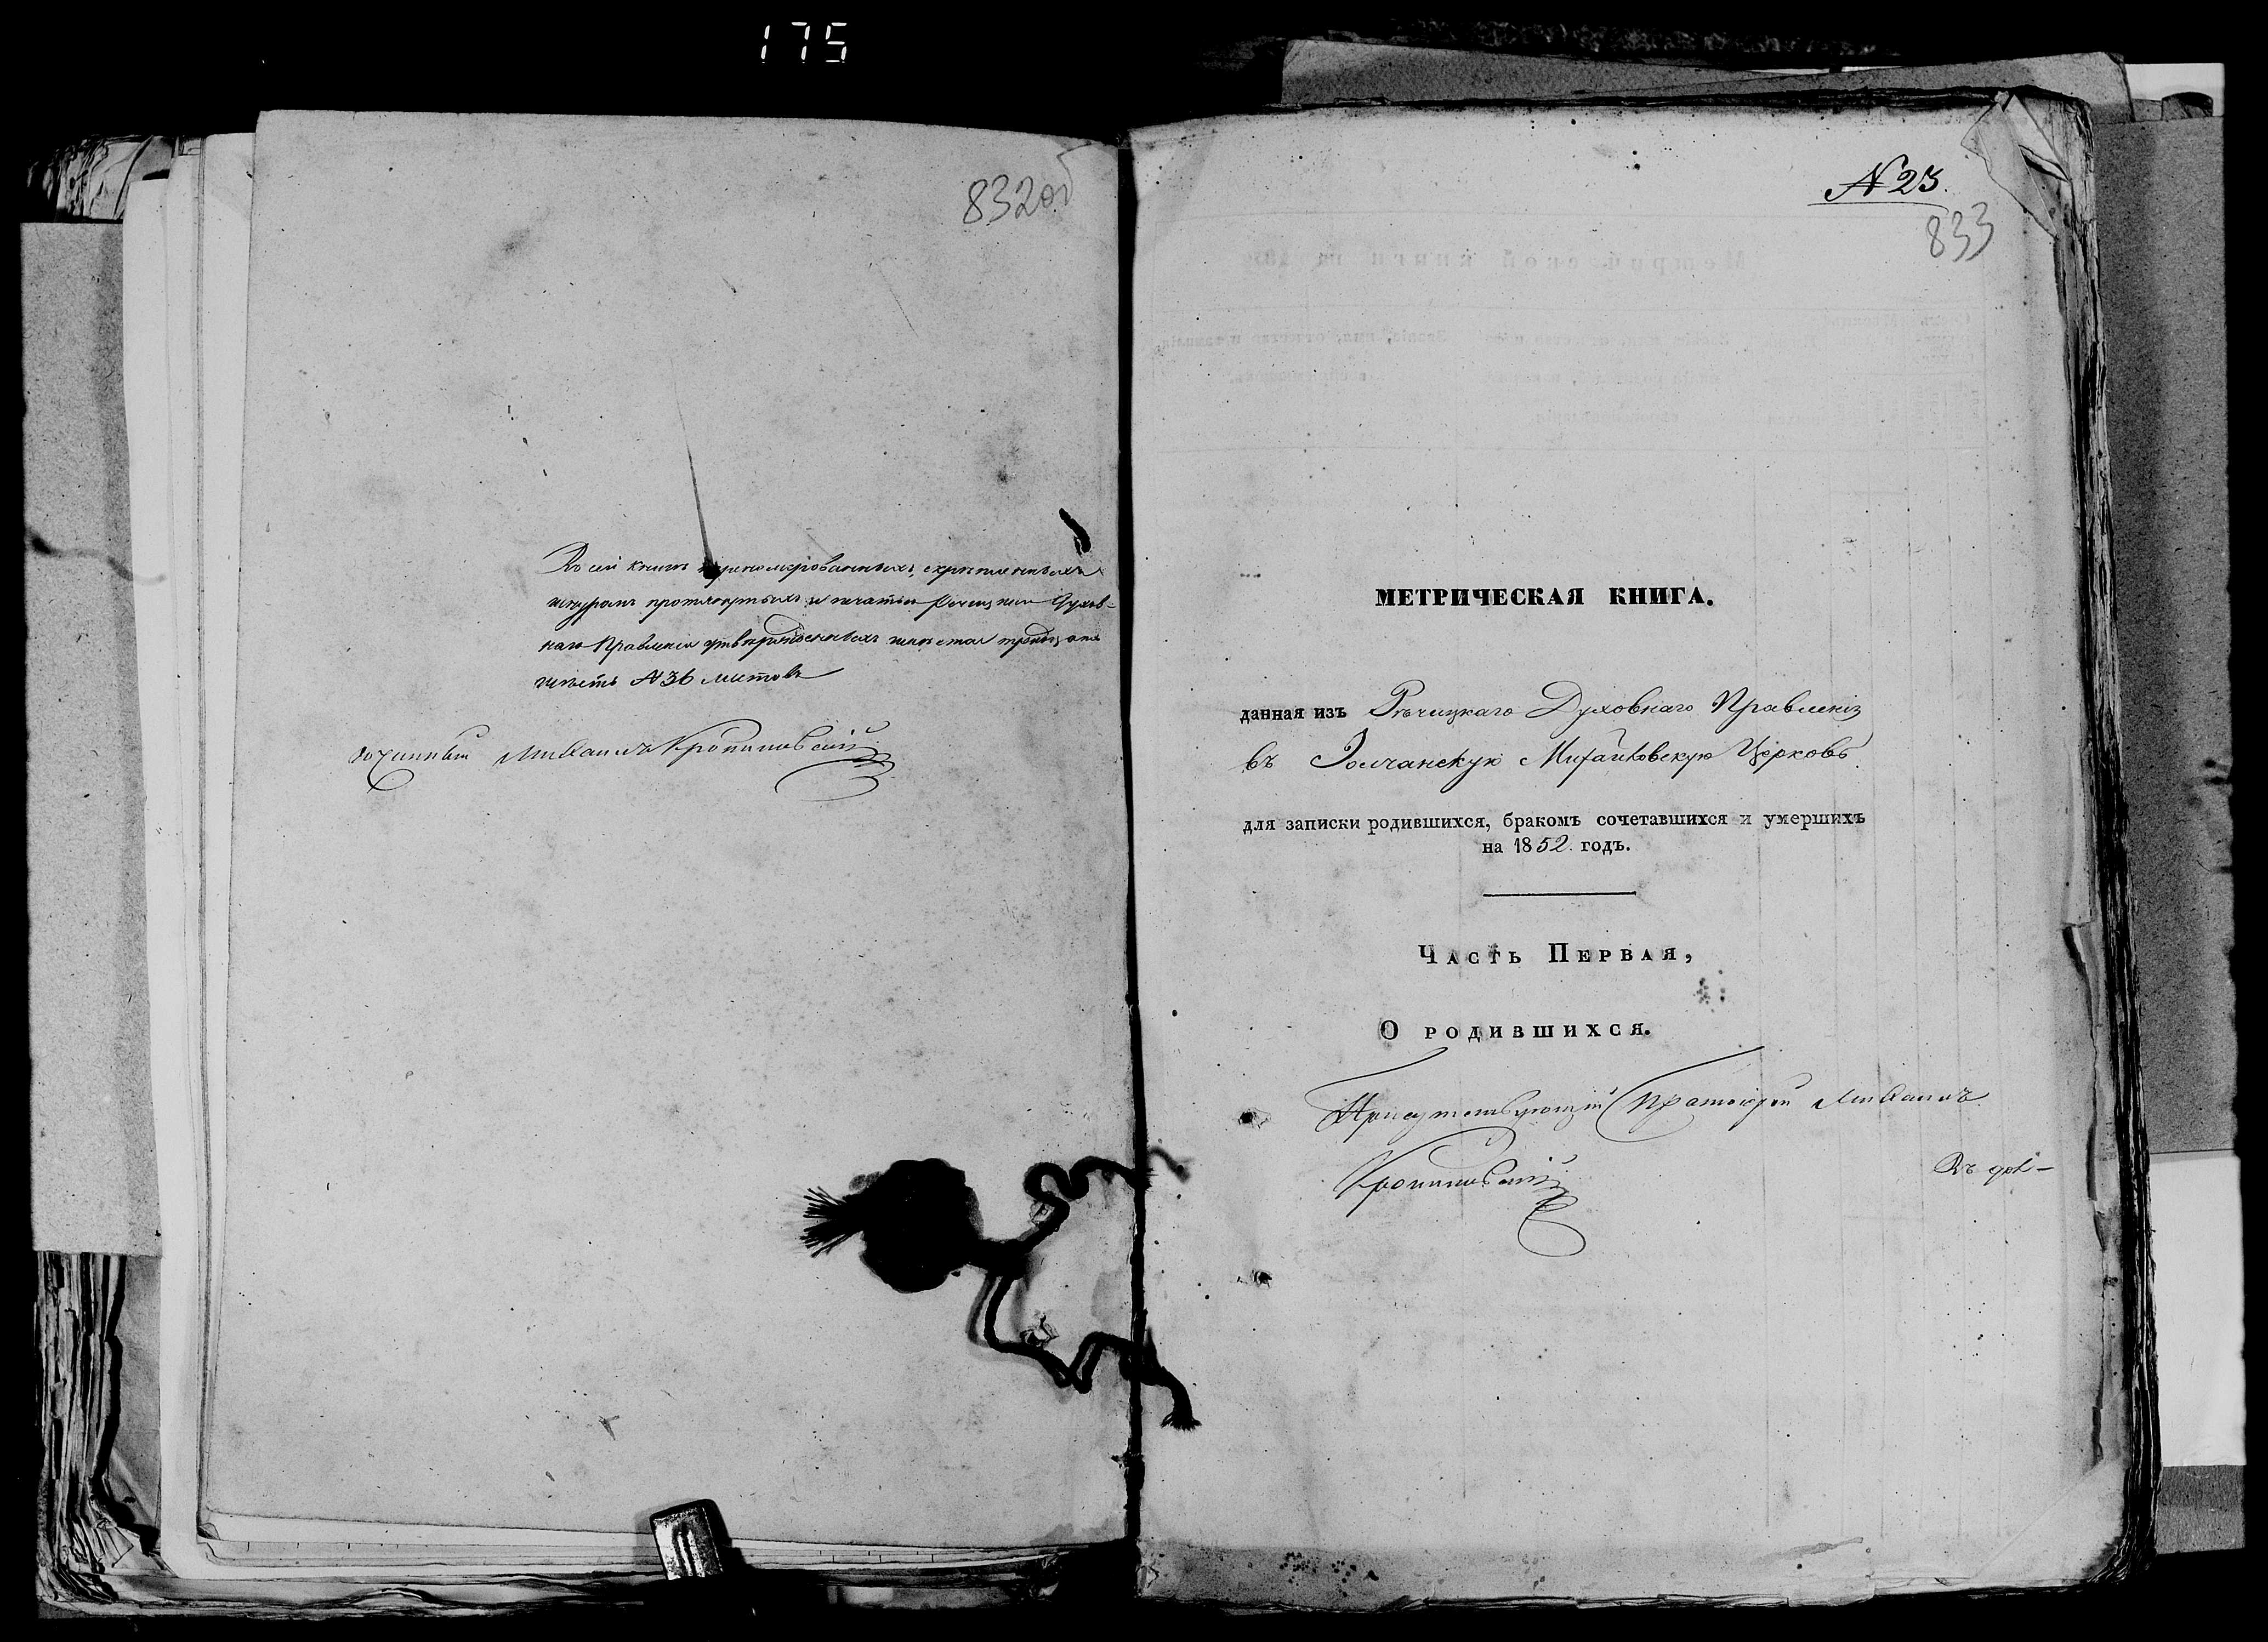 175
832об
Въ сей книгѣ пренумерованныхъ, скрѣпленныхъ
шнуромъ протянутыхъ и печатью Речицкаго Духов-
наго Правления утвержденныхъ листовъ тридцать
шесть №36 листовъ
Михаилъ
№23.
833
МЕТРИЧЕСКАЯ КНИГА.
данная изъ Рѣчицкаго Духовнаго Правленія
въ Золчанскую Михайловскую Церковь
для записки родившихся, бракомъ сочетавшихся и умершихъ
на 1852. годъ.
Часть Первая,
О родившихся.
Присутствующій Протоіерей Михаилъ
Въ